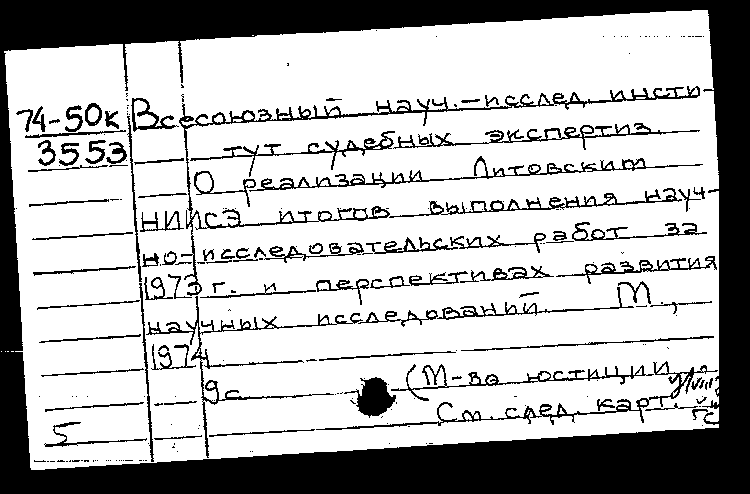 74-50к Всесоюзный науч.-исслед. инсти-
3553 тут судебных экспертиз.
О реализации Литовским
НИИСЭ итогов выполнения науч-
но-исследовательских работ за
1973 г. и перспективах развития
научных исследований. М.,
1974
9с (М-во юстиции
См. след. карт.
5